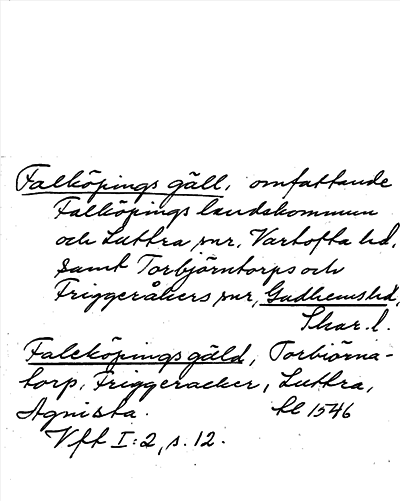 Falköpings gäll, omfattande
Falköpings landskommun
och Luttra snr, Vartofta hd,
samt Torbjörntorps och
Friggeråkers snr, Gudhems hd,
Skar. l.
Falcköpings gäld, Torbiörna-
torp, Friggeracker, Luttra,
Agnista. hl 1546
Vff I:2, s. 12.